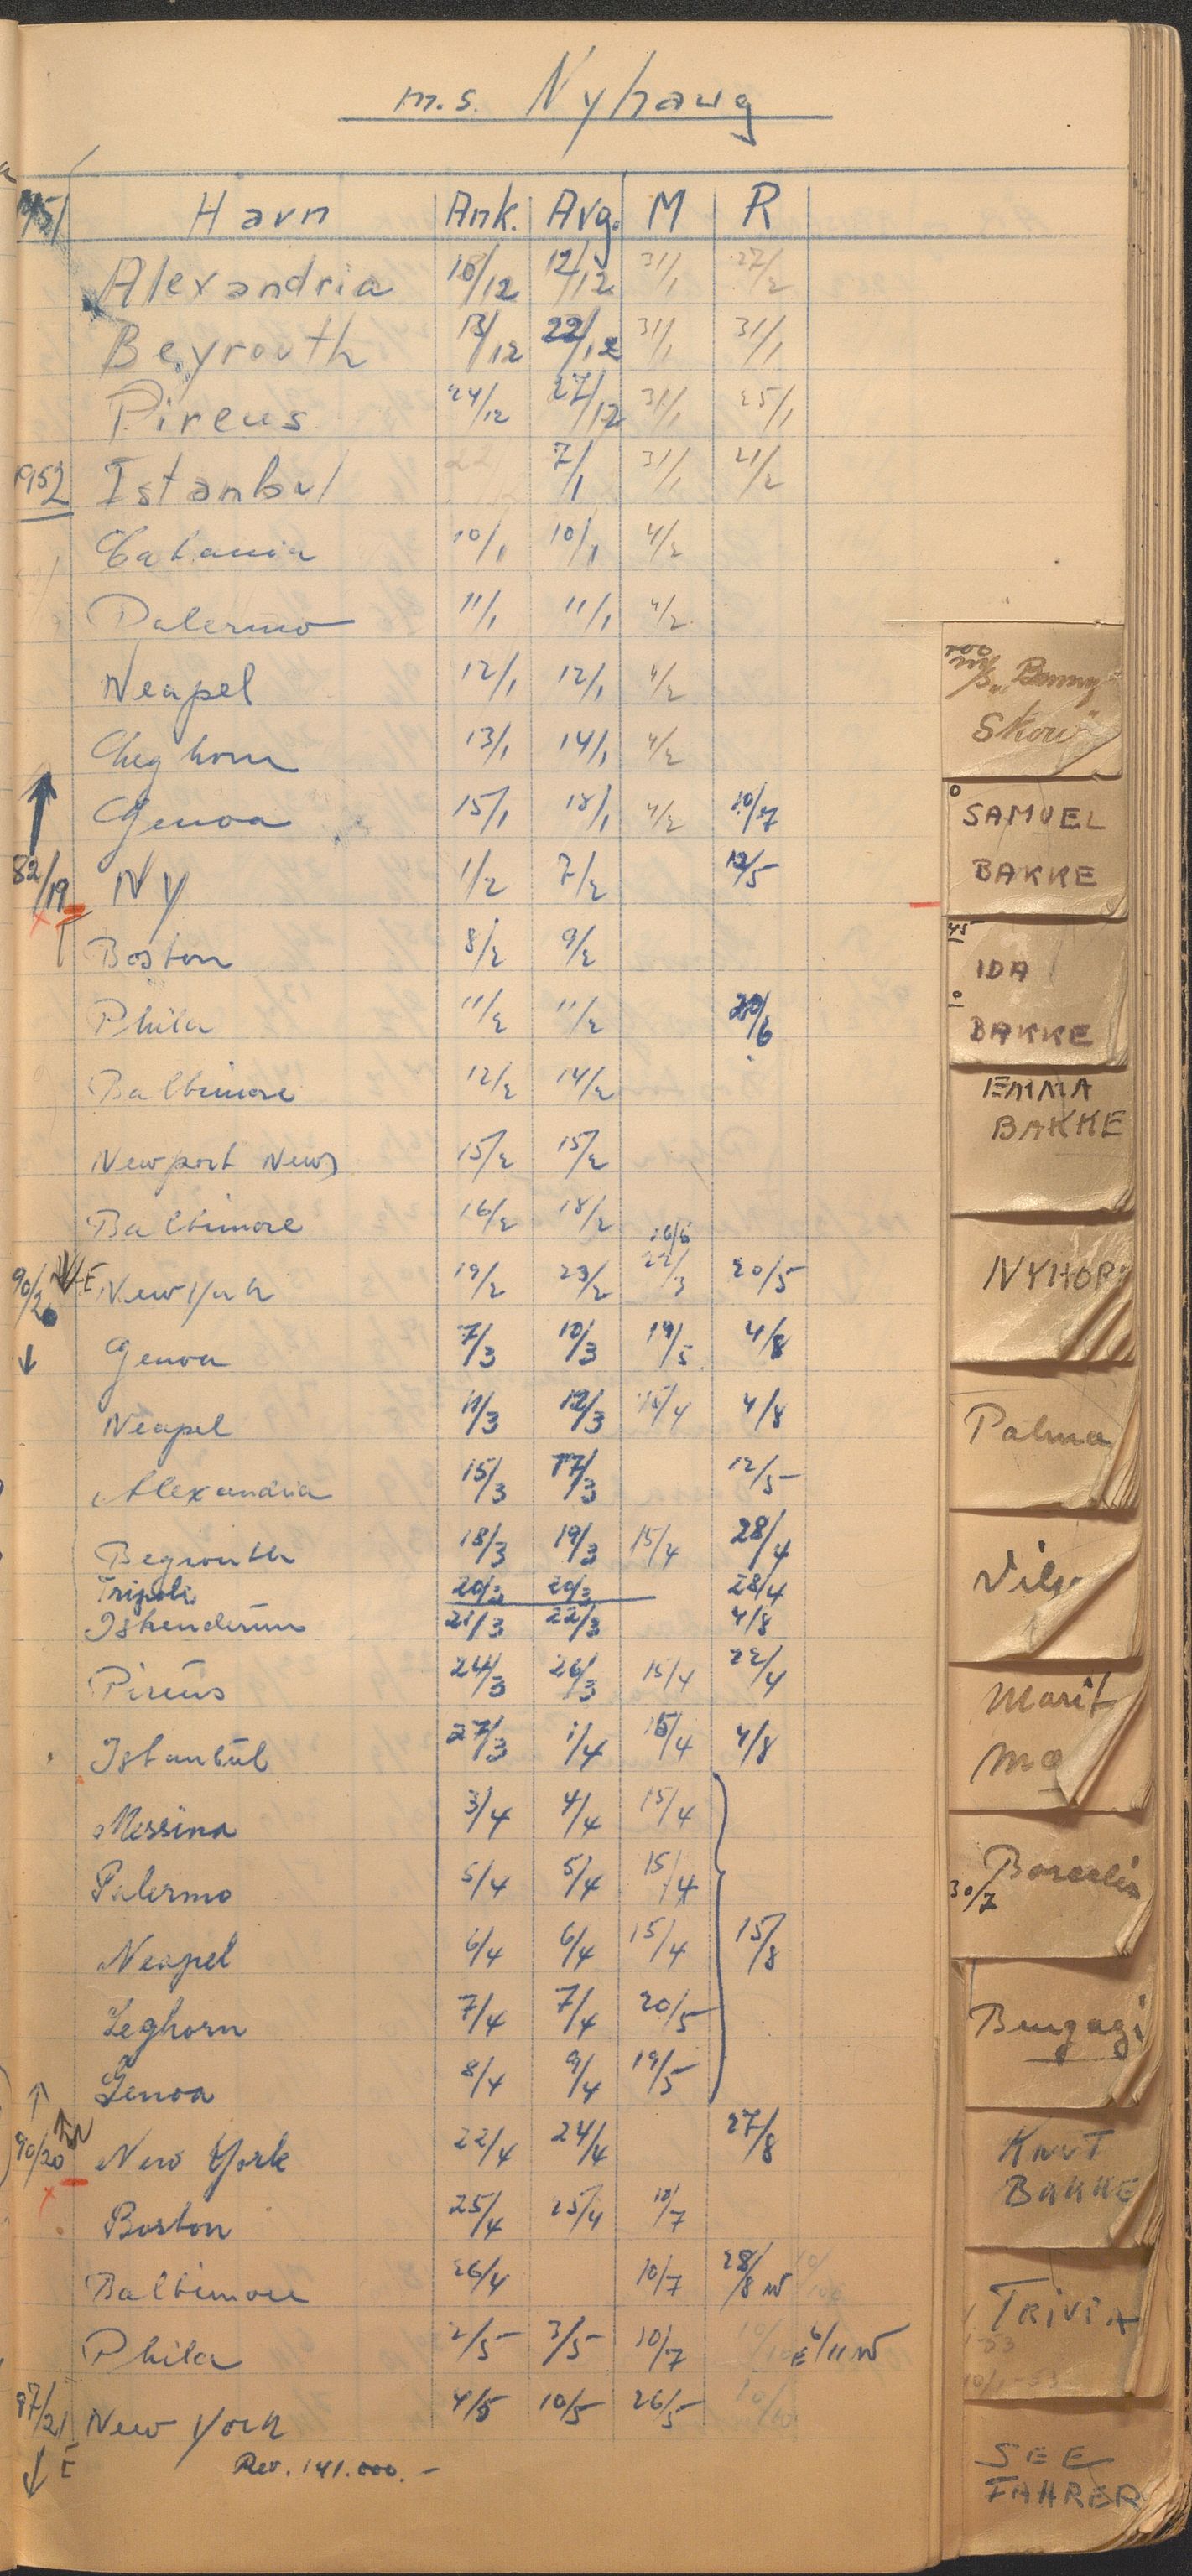 m.s. Nyhaug
1951 Havn Ank. Avg. M R
Alexandria 10/12 12/12 31/1 27/2
Beyrouth 13/12 22/12 31/1 31/1
Pireus 24/12 27/12 31/1 25/1
1952 Istanbul 7/1 31/1 21/2
Catania 10/1 10/1 4/2
Palermo 11/1 11/1 4/2
Neapel 12/1 12/1 4/2
Leghorn 13/1 14/1 4/2
Genoa 15/1 18/1 4/2 10/7
82/19 NY 1/2 7/2 12/5
Boston 8/2 9/2
Phila 11/2 11/2 20/6
Baltimore 12/2 14/2
Newport News 15/2 15/2
Baltimore 16/2 18/2
16/6
90/20 E New York 19/2 23/2 22/3 20/5
Genoa 7/3 10/3 19/5 4/8
Neapel 11/3 12/3 15/4 4/8
Alexandria 15/3 17/3 12/5
Beyrouth 18/3 19/3 15/4 28/4
Tripoli 20/3 20/3 — 28/4
Iskenderun 21/3 22/3 4/8
Pireus 24/3 26/3 15/4 22/4
Istanbul 27/3 1/4 15/4 4/8
Messina 3/4 4/4 15/4
Palermo 5/4 5/4 15/4
Neapel 6/4 6/4 15/4 15/8
Leghorn 7/4 7/4 20/5
Genoa 8/4 9/4 19/5
90/20 New York 22/4 24/4 27/8
Boston 25/4 25/4 10/7
Baltimore 26/4 10/7 28/8 W
Phila 2/5 3/5 10/7 E 6/11 W
97/21 New York 4/5 10/5 26/5
E Rev. 141.000.-
m/s "Benny
Skou"
SAMUEL
BAKKE
45
IDA
BAKKE
EMMA
BAKKE
NYHOR
Palma
Vils
Marit
Mæ
Borealis
30/7
Bengazi
KNUT
BAKKE
TRIVIA
SEE
FAHRER